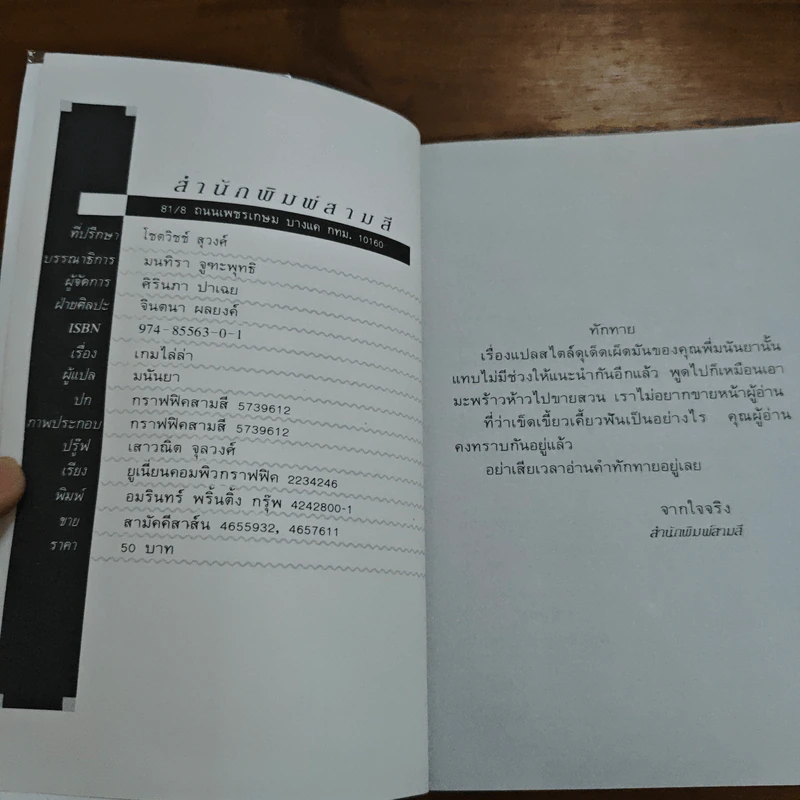 สำนักพิมพ์สามสี
81/8 ถนนเพชรเกษม บางแค กทม. 10160
ที่ปรึกษา โชติวิชช์ สุวงศ์
บรรณาธิการ มนทิรา จูฑะพุทธิ
ผู้จัดการ ศิรินภา ปาเฉย
ฝ่ายศิลปะ จินตนา ผลยงค์
ISBN 974-85563-0-1
เรื่อง เกมไล่ล่า
ผู้แปล มนันยา
ปก กราฟฟิคสามสี 5739612
ภาพประกอบ กราฟฟิคสามสี 5739612
ปรู๊ฟ เสาวณิต จุลวงศ์
เรียง ยูเนี่ยนคอมพิวกราฟฟิค 2234246
พิมพ์ อมรินทร์ พริ้นติ้ง กรุ๊พ 4242800-1
ขาย สามัคคีสาส์น 4655932, 4657611
ราคา 50 บาท
ทักทาย
เรื่องแปลสไตล์ดุเด็ดเผ็ดมันของคุณพี่มนันยานั้น
แทบไม่มีช่วงให้แนะนำกันอีกแล้ว พูดไปก็เหมือนเอา
มะพร้าวห้าวไปขายสวน เราไม่อยากขายหน้าผู้อ่าน
ที่ว่าเข็ดเขี้ยวเคี้ยวฟันเป็นอย่างไร คุณผู้อ่าน
คงทราบกันอยู่แล้ว
อย่าเสียเวลาอ่านคำทักทายอยู่เลย
จากใจจริง
สำนักพิมพ์สามสี